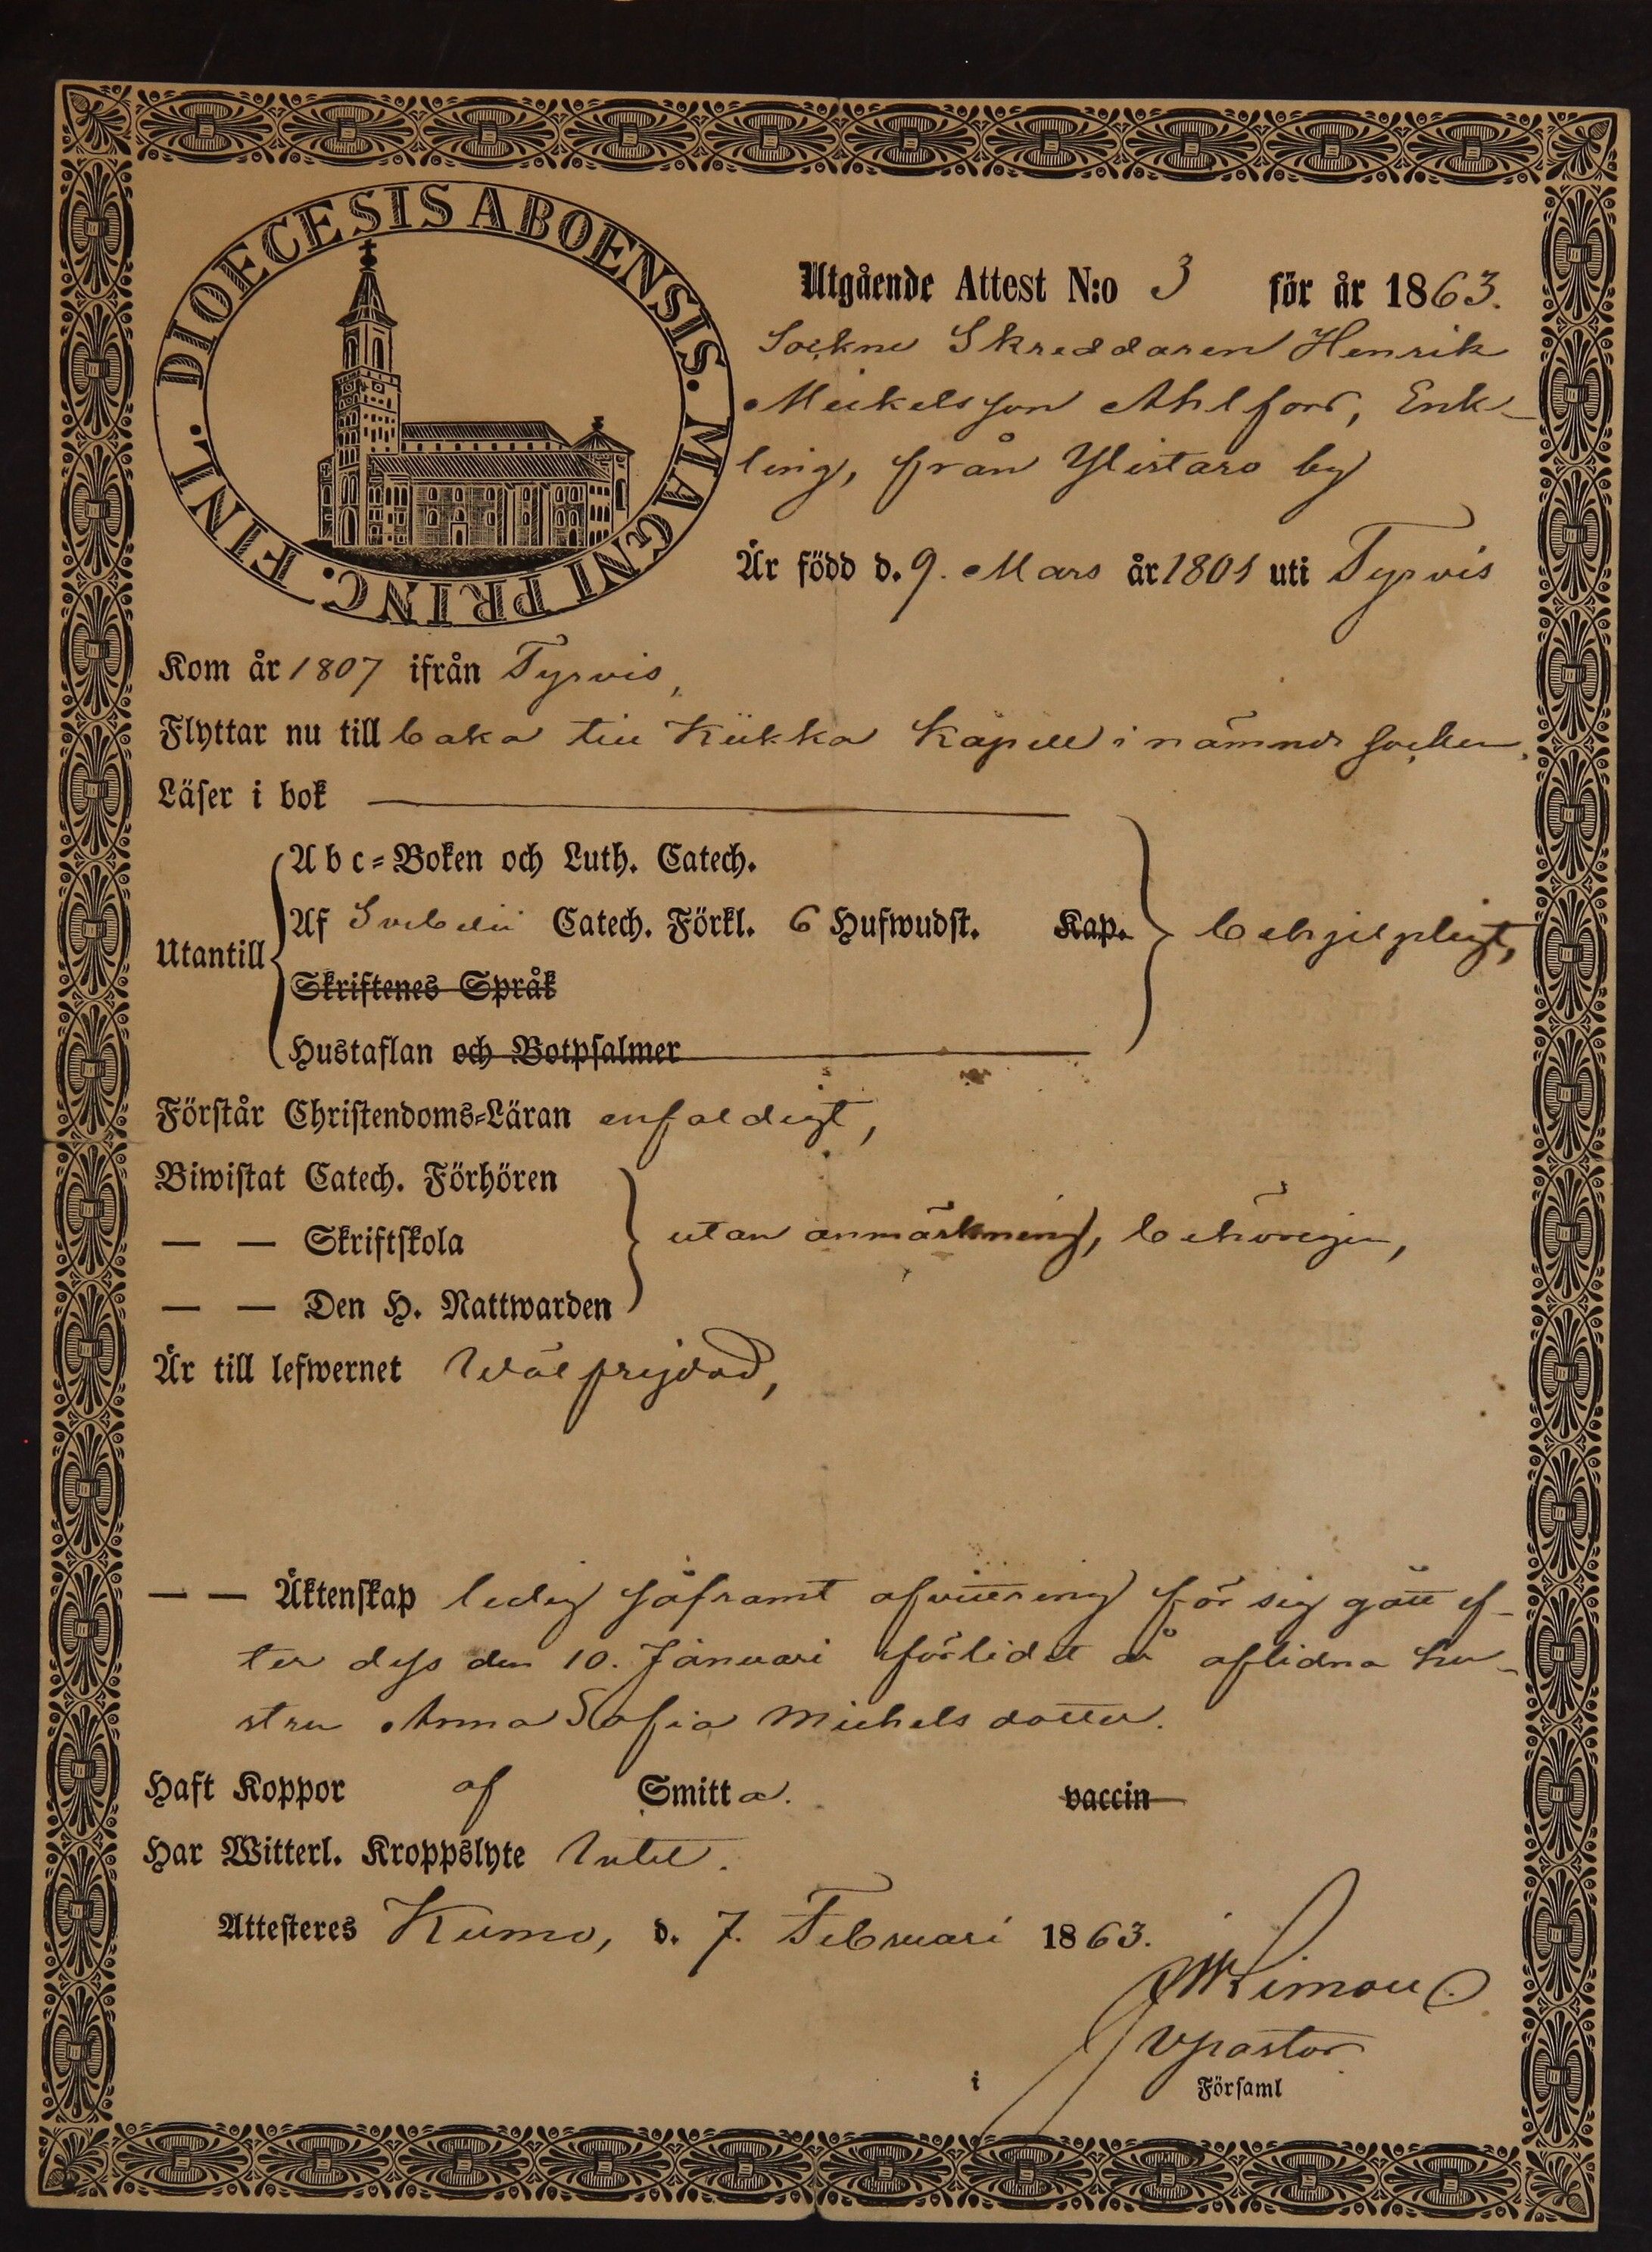 DIOECESIS ABOENSIS. MAGNI PRINC. FINL.
Utgående Attest N:o 3 för år 1863.
Sockne Skreddaren Henrik
Meikelsson Ahlfors, Enk-
ling, från Ylistaro by
Är född d. 9. Mars år 1801 uti Tyrvis
Kom år 1807 ifrån Tyrvis,
Flyttar nu till baka till Kiikka Kapell i nämnde socken.
Läser i bok
Utantill
Abc-Boken och Luth. Catech.
Af Svebelii Catech. Förkl. 6 Hufwudst. Kap.
behjelpligt,
Skriftenes Språk
Hustaflan och Botpsalmer
Förstår Christendoms-Läran enfaldigt,
Biwistat Catech. Förhören
— — Skriftskola
utan anmärkning, behörigen,
— — Den H. Nattwarden
Är till lefwernet Wäl frejdad,
— — Äktenskap ledig såframt afvittring för sig gått ef-
ter dess den 10. Januari förlidet år aflidna hu-
stru Anna Sofia Michelsdotter.
Haft Koppor af Smitta. vaccin
Har Witterl. Kroppslyte Intet.
Attesteres Kumo, d. 7. Februari 1863.
Vpastor
i Församl